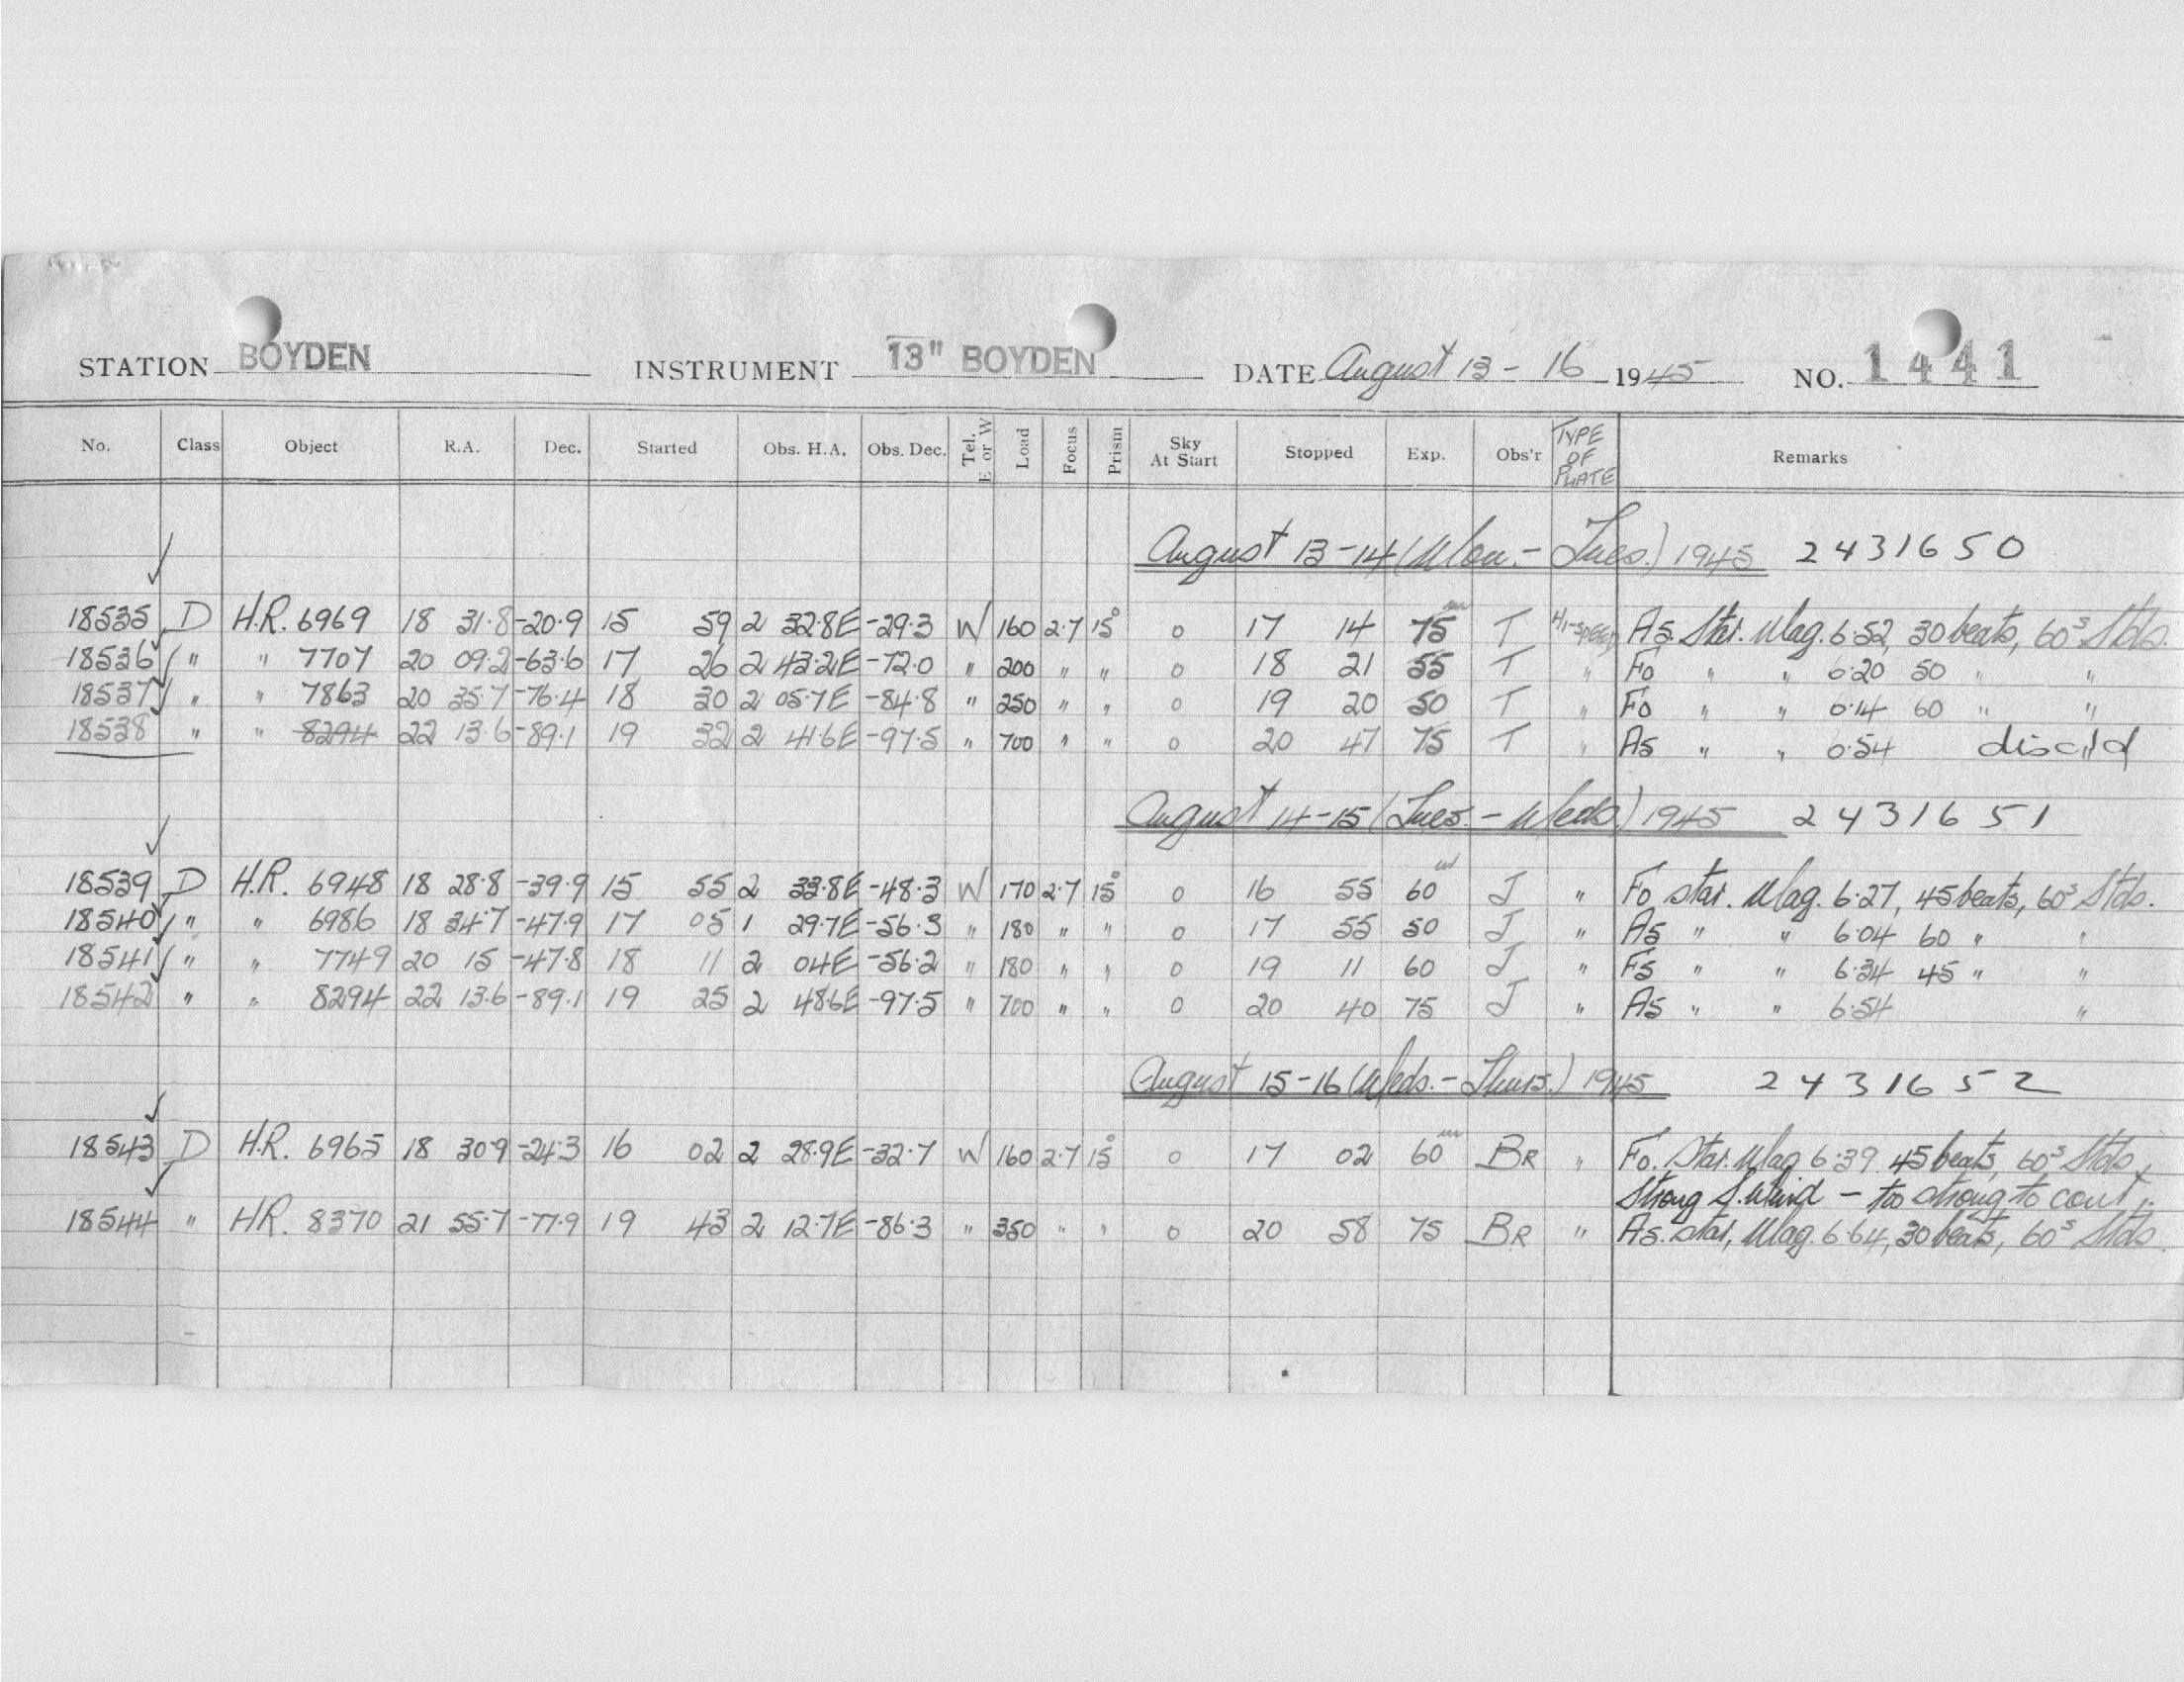 STATION BOYDEN INSTRUMENT 13" BOYDEN DATE August 13 - 16 1945 NO. 1441
No. Class Object R.A. Dec. Started Obs. H.A. Obs. Dec. Tel. E or W Load Focus Prism Sky At Start Stopped Exp. Obs'r TYPE OF PLATE Remarks
August 13-14 (Mon. - Tues.) 1945 2431650
18535 D H.R. 6969 18 31.8 -20.9 15 59 2 32.8E -29.3 W 160 2.7 15° 0 17 14 75m T Hi-speed A5 Star. Mag. 6.52, 30 beats, 60s Stds.
18536 " " 7707 20 09.2 -63.6 17 26 2 43.2E -72.0 " 200 " " 0 18 21 55 T " F0 " " 6.20 50 " "
18537 " " 7863 20 35.7 -76.4 18 30 2 05.7E -84.8 " 250 " " 0 19 20 50 T " F0 " " 6.14 60 " "
18538 " " 8294 22 13.6 -89.1 19 32 2 41.6E -97.5 " 700 " " 0 20 47 75 T " A5 " " 6.54 disc'd
August 14-15 (Tues. - Weds) 1945 2431651
18539 D H.R. 6948 18 28.8 -39.9 15 55 2 33.8E -48.3 W 170 2.7 15° 0 16 55 60m J " F0 star. Mag. 6.27, 45 beats, 60s Stds.
18540 " " 6986 18 34.7 -47.9 17 05 1 29.7E -56.3 " 180 " " 0 17 55 50 J " A5 " " 6.04 60 " "
18541 " " 7749 20 15 -47.8 18 11 2 04E -56.2 " 180 " " 0 19 11 60 J " F5 " " 6.34 45 " "
18542 " " 8294 22 13.6 -89.1 19 25 2 48.6E -97.5 " 700 " " 0 20 40 75 J " A5 " " 6.54 "
August 15-16 (Weds. - Thurs.) 1945 2431652
18543 D H.R. 6965 18 30.9 -24.3 16 02 2 28.9E -32.7 W 160 2.7 15° 0 17 02 60m BR " F0. Star. Mag 6.39. 45 beats, 60s Stds.
Strong S. Wind - too strong to cont.
18544 " HR. 8370 21 55.7 -77.9 19 43 2 12.7E -86.3 " 350 " " 0 20 58 75 BR " A5. star, Mag. 6.64, 30 beats, 60s Stds.